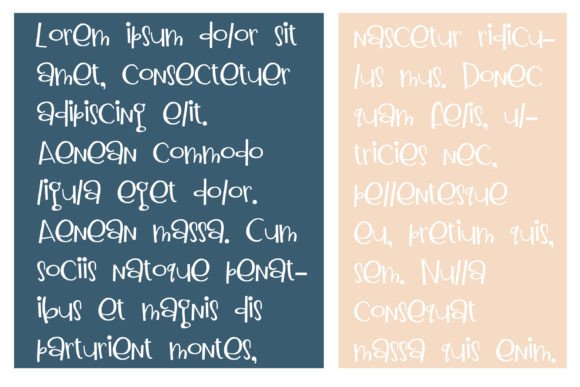 Lorem ipsum dolor sit
amet, consectetuer
adipiscing elit.
Aenean commodo
ligula eget dolor.
Aenean massa. Cum
sociis natoque penat-
ibus et magnis dis
parturient montes,
nascetur ridicu-
lus mus. Donec
quam felis, ul-
tricies nec,
pellentesque
eu, pretium quis,
sem. Nulla
consequat
massa quis enim.